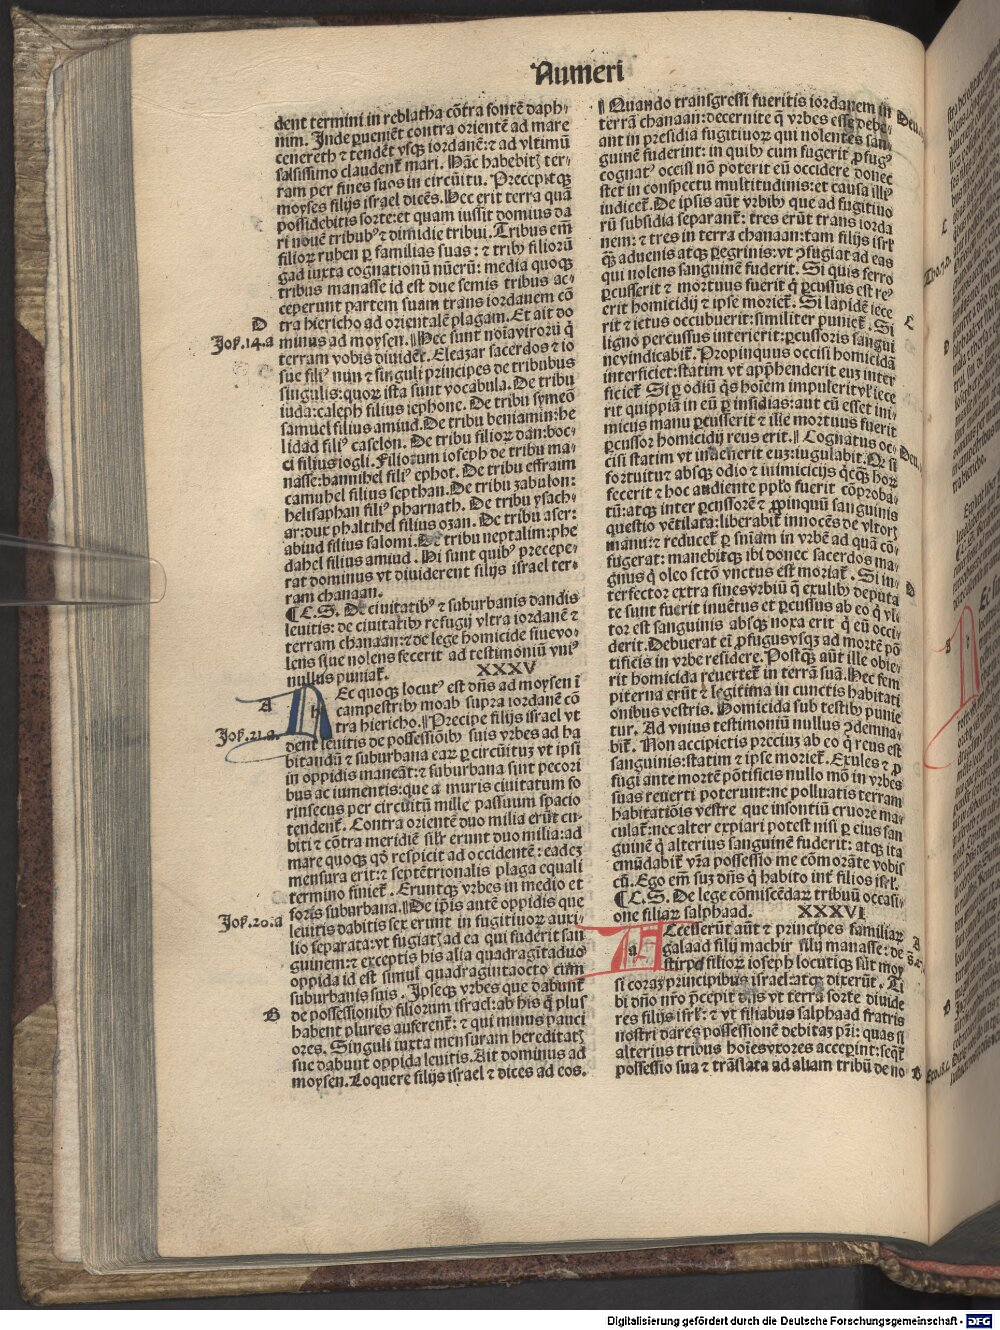 Numeri
dent termini in reblatha cõtra fontẽ daph-
nim. Inde ꝑueniẽt contra orientẽ ad mare
cenereth ⁊ tendẽt vsqꝫ iordanẽ: ⁊ ad vltimũ
salsissimo claudent᷑ mari. Hãc habebitꝭ ter-
ram per fines suos in circũitu. Precepitqꝫ
moyses filijs israel dicẽs. Hec erit terra quã
possidebitis sorte: et quam iussit dominus da
ri nouẽ tribubꝰ ⁊ dimidie tribui. Tribus em̃
filioꝝ ruben ꝑ familias suas: ⁊ tribꝰ filiorũ
gad iuxta cognationũ nũerũ: media quoqꝫ
tribus manasse id est due semis tribus ac-
ceperunt partem suam trans iordanem cõ
D tra hiericho ad orientalẽ plagam. Et ait do
Jos. 14. a minus ad moysen. Hec sunt noĩa virorũ q̃
terram vobis diuidẽt. Eleazar sacerdos ⁊ io
sue filiꝰ nun ⁊ singuli principes de tribubus
singulis: quoꝝ ista sunt vocabula. De tribu
iuda: caleph filius iephone. De tribu symeõ
samuel filius amiud. De tribu beniamin: he
lidad filiꝰ caselon. De tribu filioꝝ dan: boc-
ci filius iogli. Filiorum ioseph de tribu ma-
nasse: hannihel filiꝰ ephot. De tribu effraim
camuhel filius septhan. De tribu zabulon:
helisaphan filiꝰ pharnath. De tribu ysach-
ar: dux phaltihel filius ozan. De tribu aser:
abiud filius salomi. De tribu neptalim: phe
dahel filius amiud. Hi sunt quibꝰ precepe-
rat dominus vt diuiderent filijs israel ter-
ram chanaan.
¶ C. S. De ciuitatibꝰ ⁊ suburbanis dandis
leuitis: de ciuitatibꝰ refugij vltra iordanẽ ⁊
terram chanaan: ⁊ de lege homicide siue vo-
lens siue nolens fecerit ad testimoniũ vniꝰ
nullus puniat᷑. XXXV
A HEc quoqꝫ locutꝰ est dñs ad moysen ĩ
campestribꝰ moab supra iordanẽ cõ
tra hiericho. Precipe filijs israel vt
Jos. 21. a. dent leuitis de possessiõibꝰ suis vrbes ad ha
bitandũ ⁊ suburbana eaꝝ ꝑ circũitũ: vt ipsi
in oppidis maneãt: ⁊ suburbana sint pecori
bus ac iumentis: que a muris ciuitatum fo
rinsecus per circuitũ mille passuum spacio
tendent᷑. Contra orientẽ duo milia erũt cu-
biti ⁊ cõtra meridiẽ sil̃r erunt duo milia: ad
mare quoqꝫ qd̃ respicit ad occidentẽ: eadeꝫ
mensura erit: ⁊ septẽtrionalis plaga equali
termino finiet᷑. Eruntqꝫ vrbes in medio et
foris suburbana. De ip̃is autẽ oppidis que
Jos. 20. a leuitis dabitis sex erunt in fugitiuoꝝ auxi-
lio separata: vt fugiat ad ea qui fuderit san
guinem: ⁊ exceptis his alia quadragĩtaduo
oppida id est simul quadragintaocto cum
suburbanis suis. Ipseqꝫ vrbes que dabunt᷑
B de possessionibꝰ filiorum israel: ab his q̃ plus
habent plures auferent᷑: ⁊ qui minus pauci
ores. Singuli iuxta mensuram hereditatꝭ
sue dabunt oppida leuitis. Ait dominus ad
moysen. Loquere filijs israel ⁊ dices ad eos.
Quando transgressi fueritis iordanem in
terrã chanaan: decernite q̃ vrbes esse debe-
ant in presidia fugitiuoꝝ qui nolentes san-
guinẽ fuderint: in quibꝰ cum fugerit ꝓfugꝰ
cognatꝰ occisi nõ poterit eũ occidere donec
stet in conspectu multitudinis: et causa illiꝰ
iudicet᷑. De ipsis aũt vrbibꝰ que ad fugitiuo
rũ subsidia separant᷑: tres erũt trans iorda
nem: ⁊ tres in terra chanaan: tam filijs isrl̃
qꝫ̃ aduenis atqꝫ ꝑegrinis: vt ꝯfugiat ad eas
qui nolens sanguinẽ fuderit. Si quis ferro
ꝑcusserit ⁊ mortuus fuerit q̃ ꝑcussus est reꝰ
erit homicidij ⁊ ipse moriet᷑. Si lapidẽ iece
rit ⁊ ictus occubuerit: similiter puniet᷑. Si
C
ligno percussus interierit: ꝑcussoris sangui
ne vindicabit᷑. Propinquus occisi homicidã
interficiet: statim vt app̃henderit euꝫ inter
ficiet᷑. Si ꝑ odiũ q̃s hoĩem impulerit vl̃ iece
rit quippiã in eũ ꝑ insidias: aut cũ esset ini-
micus manu ꝑcusserit ⁊ ille mortuus fuerit
ꝑcussor homicidij reus erit. Cognatus oc-
cisi statim vt inuenerit euꝫ: iugulabit. Qꝫ si
fortuitu ⁊ absqꝫ odio ⁊ inimicicijs q̃cqꝫ hoꝝ
fecerit ⁊ hoc audiente pp̃lo fuerit cõproba-
tũ: atqꝫ inter ꝑcussorẽ ⁊ ꝓpinquũ sanguinis
questio vẽtilata: liberabit᷑ innocẽs de vltorꝭ
manu: ⁊ reducet᷑ ꝑ sñiam in vrbẽ ad quã cõ-
fugerat: manebitqꝫ ibi donec sacerdos ma-
gnus q̃ oleo scтõ vnctus est moriat᷑. Si in-
D
terfector extra fines vrbiũ q̃ exulibꝰ deputa
te sunt fuerit inuẽtus et ꝑcussus ab eo q̃ vl-
tor est sanguinis absqꝫ noxa erit q̃ eũ occi-
derit. Debuerat ei ꝓfugus vsqꝫ ad mortẽ põ
tificis in vrbe residere. Postqꝫ̃ aũt ille obie-
rit homicida reuertet᷑ in terrã suã. Hec sem
piterna erũt ⁊ legitima in cunctis habitati
onibus vestris. Homicida sub testibꝰ punie
tur. Ad vnius testimoniũ nullus ꝯdemna-
bit᷑. Non accipietis preciuꝫ ab eo q̃ reus est
sanguinis: statim ⁊ ipse moriet᷑. Exules ⁊ ꝓ
fugi ante mortẽ põtificis nullo mõ in vrbes
suas reuerti poterunt: ne polluatis terram
habitatiõis vestre que insontiũ cruore ma-
culat᷑: nec alter expiari potest nisi ꝑ eius san
guinẽ q̃ alterius sanguinẽ fuderit: atqꝫ ita
emũdabit᷑ vr̃a possessio me cõmorãte vobis
cũ. Ego em̃ suꝫ dñs q̃ habito int᷑ filios isrl̃.
¶ C. S. De lege cõmiscẽdaꝝ tribuũ occasi-
one filiaꝝ salphaad. XXXVI
ACcesserũt aũt ⁊ principes familiaꝝ
A
galaad filij machir filij manasse: de
stirpe filioꝝ ioseph locutiqꝫ sũt moy
si coraꝫ principibus israel: atqꝫ dixerũt. Ti
bi dño nr̃o p̃cepit dñs vt terrã sorte diuide
res filijs isrl̃: ⁊ vt filiabus salphaad fratris
nostri dares possessionẽ debitaꝫ pr̃i: quas si
alterius tribus hoĩes vxores acceꝑint: seq̃t᷑
possessio sua ⁊ trãslata ad aliam tribũ de no
B
Digitalisierung gefördert durch die Deutsche Forschungsgemeinschaft - DFG